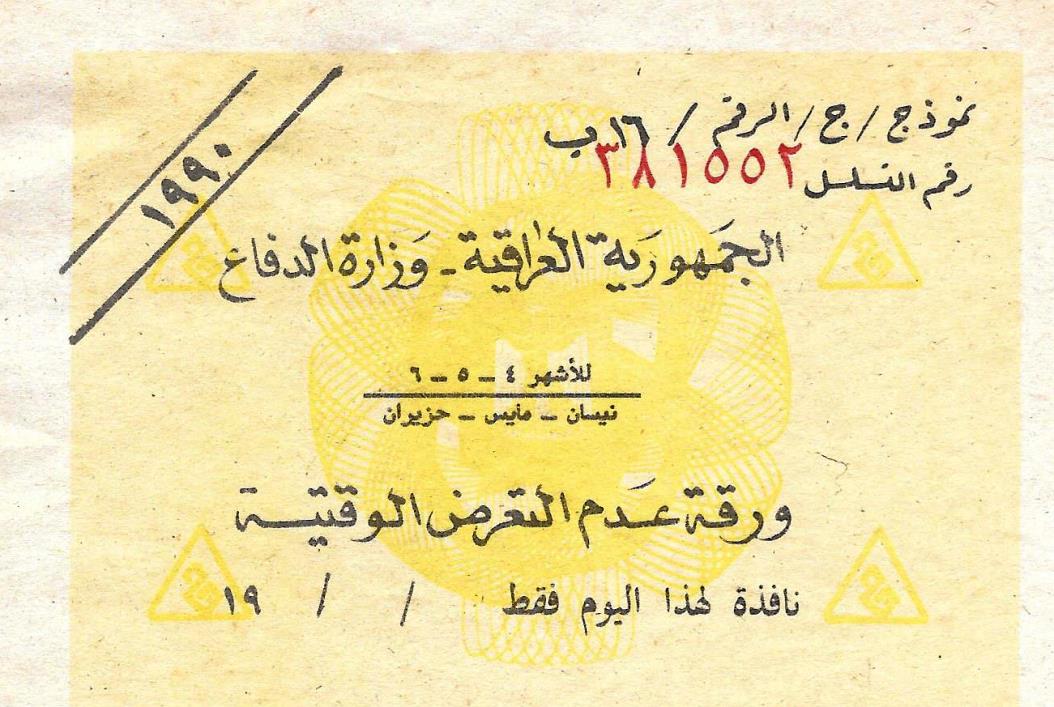 نموذج / ج / الرقم / ١٦ ب
رقم التسلسل ٣٨١٥٥٢
١٩٩٠
الجمهورية العراقية - وزارة الدفاع
للأشهر ٤ – ٥ – ٦
نيسان – مايس – حزيران
ورقة عدم التعرض الوقتية
نافذة لهذا اليوم فقط / / ١٩